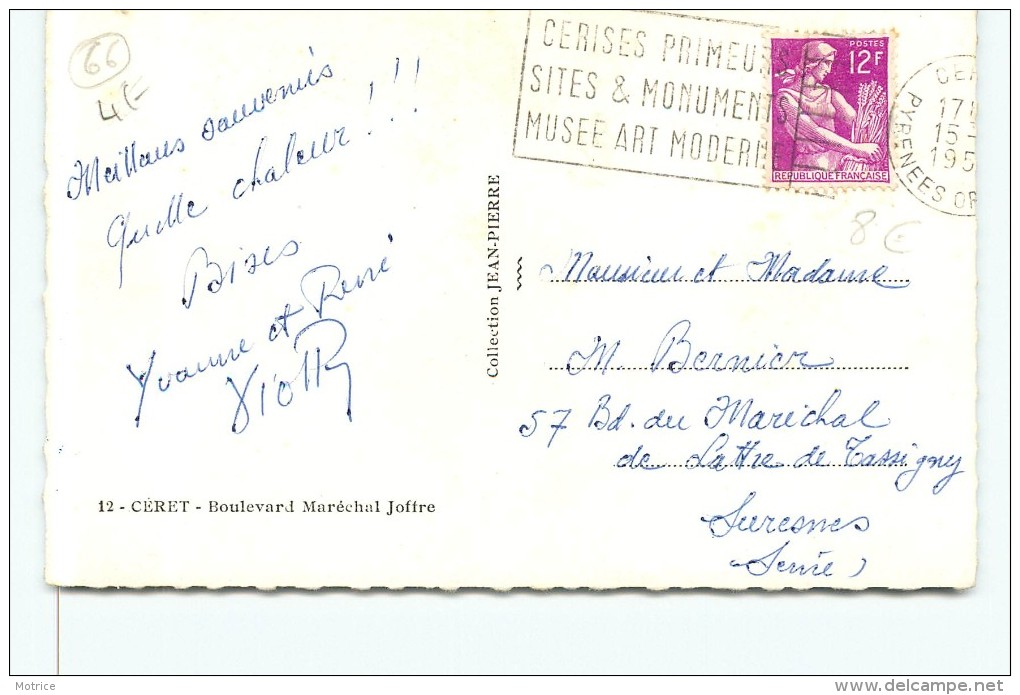 66
4€
Meilleurs souvenirs
Quelle chaleur !!!
Bises
Yvonne et René
12 - CÉRET - Boulevard Maréchal Joffre
Collection JEAN-PIERRE
CERISES PRIMEURS
SITES & MONUMENTS
MUSEE ART MODERNE
POSTES
12F
REPUBLIQUE FRANÇAISE
CER
17H
15-
195
PYRENEES OR
8€
Monsieur et Madame
M. Bernier
57 Bd. du Maréchal
de Lattre de Tassigny
Suresnes
(Seine)
Motrice
www.delcampe.net